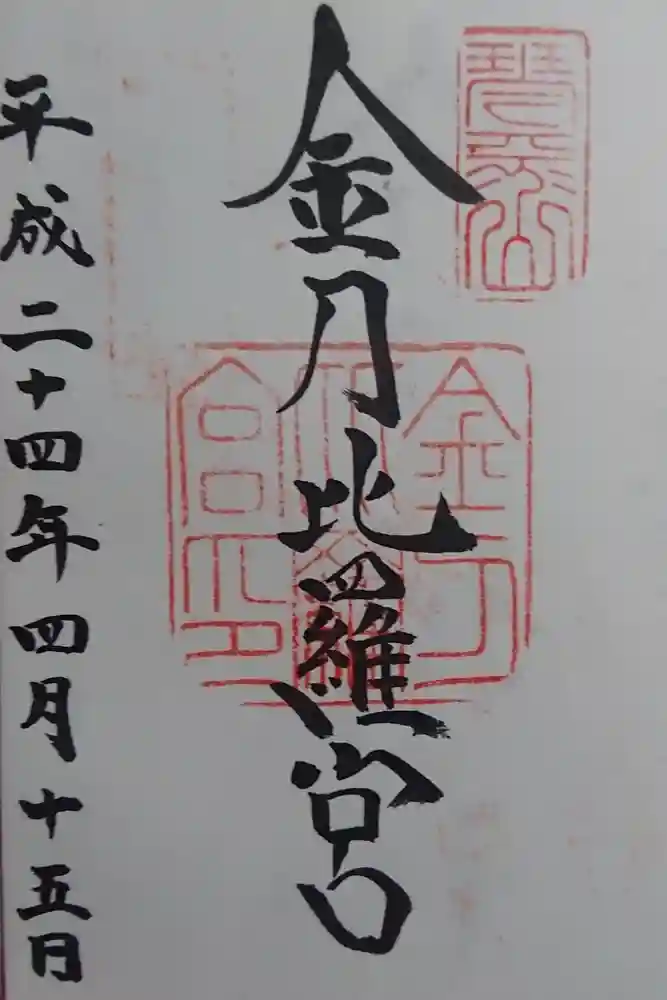 琴平山
金刀比羅宮
金刀
比羅
宮印
平成二十四年四月十五日